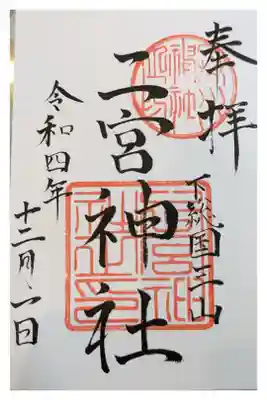 奉拝
下総国三山
二宮神社
令和四年
十二月一日